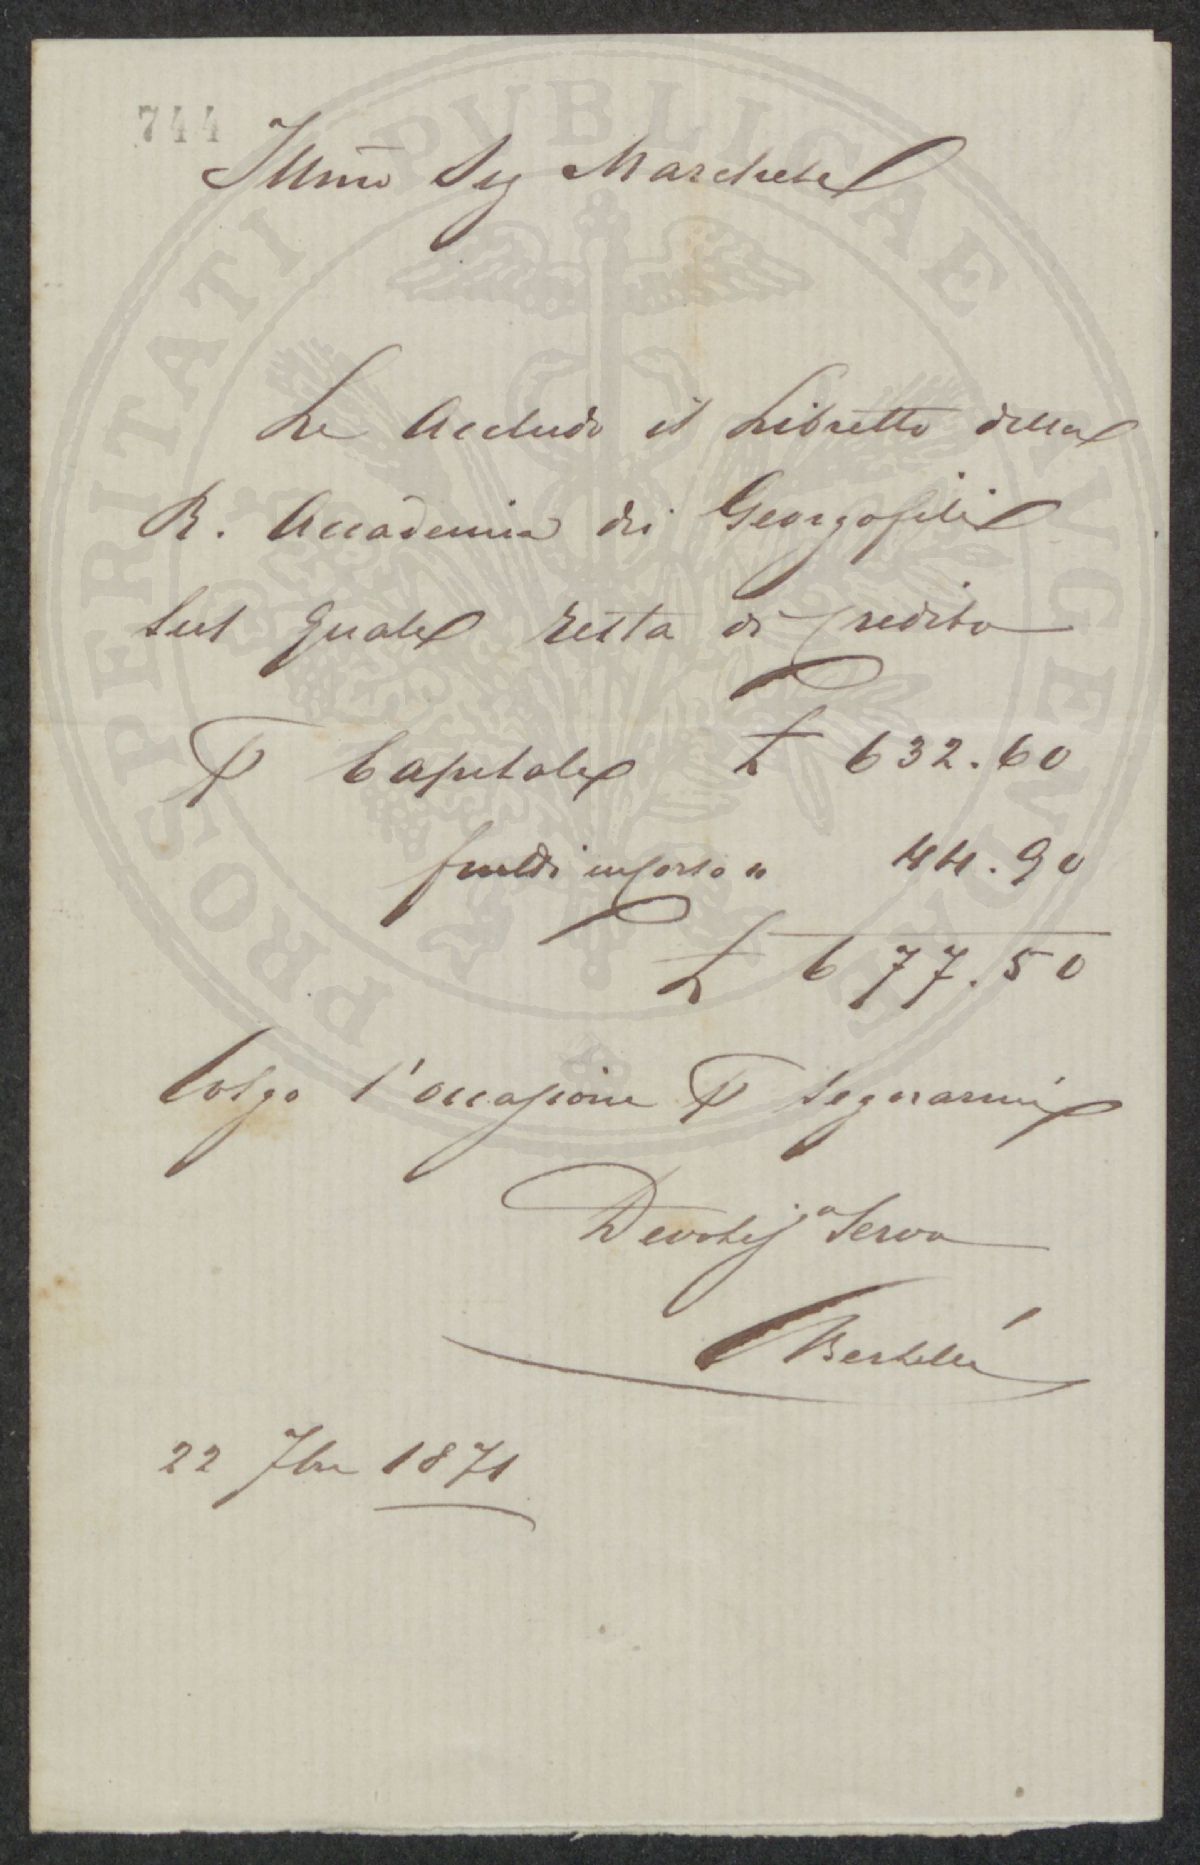 744
Illmo Sig Marchese
Le Accludo il Libretto della
R. Accademia dei Georgofili
sul quale resta di Credito
P Capitale £ 632.60
frutti " 44.90
£ 677.50
Colgo l'occasione P segnarmi
Devotis Servo
Bertelli
22 7bre 1871
PROSPERITATI PVBLICAE AVGENDAE